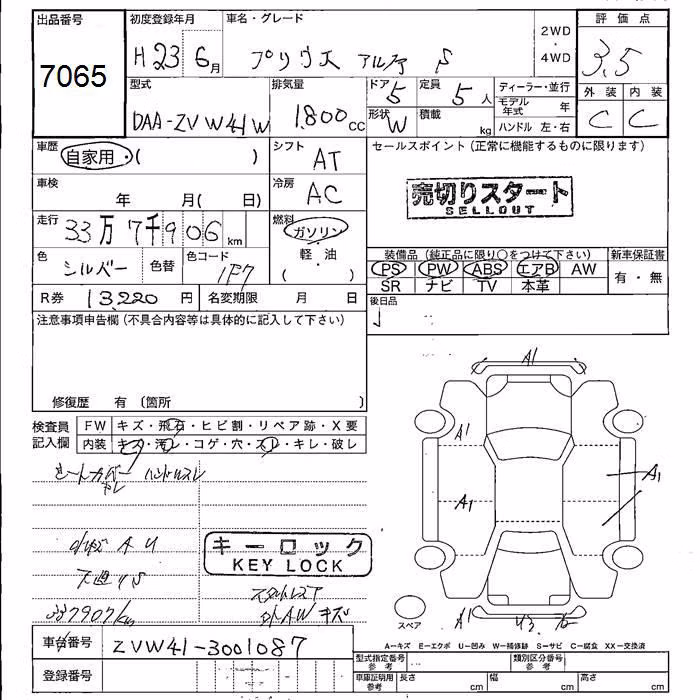 出品番号
7065
初度登録年月
H23 6月
車名・グレード
プリウス アルファ S
2WD
・
4WD
評価点
3.5
外装 内装
C C
型式
DAA-ZVW41W
排気量
1800cc
ドア 5
形状 W
定員 5人
積載 kg
ディーラー・並行
モデル年式 年
ハンドル 左・右
車歴 自家用・( )
シフト AT
車検 年 月( 日)
冷房 AC
走行 33万7千906km
燃料 ガソリン
軽・油
( )
色 シルバー 色替 色コード 1F7
R券 13,220円 名変期限 月 日
セールスポイント(正常に機能するものに限ります)
売切りスタート
SELLOUT
装備品(純正品に限り○をつけて下さい) 新車保証書
PS PW ABS エアB AW 有・無
SR ナビ TV 本革
後日品
注意事項申告欄(不具合内容等は具体的に記入して下さい)
修復歴 有 (箇所 )
検査員記入欄
FW キズ・飛石・ヒビ割・リペア跡・X要
内装 キズ・汚レ・コゲ・穴・スレ・キレ・破レ
シートカバー ハンドルスレ
ヤレ
A U
キーロック
KEY LOCK
337907km
AWキズ
A1
A1
A1
A1
A1
スペア
A-キズ E-エクボ U-凹み W-補修跡 S-サビ C-腐食 XX-交換済
車台番号 ZVW41-3001087
登録番号
型式指定番号 参考 類別区分番号 参考
車庫証明用 参考 長さ cm 幅 cm 高さ cm